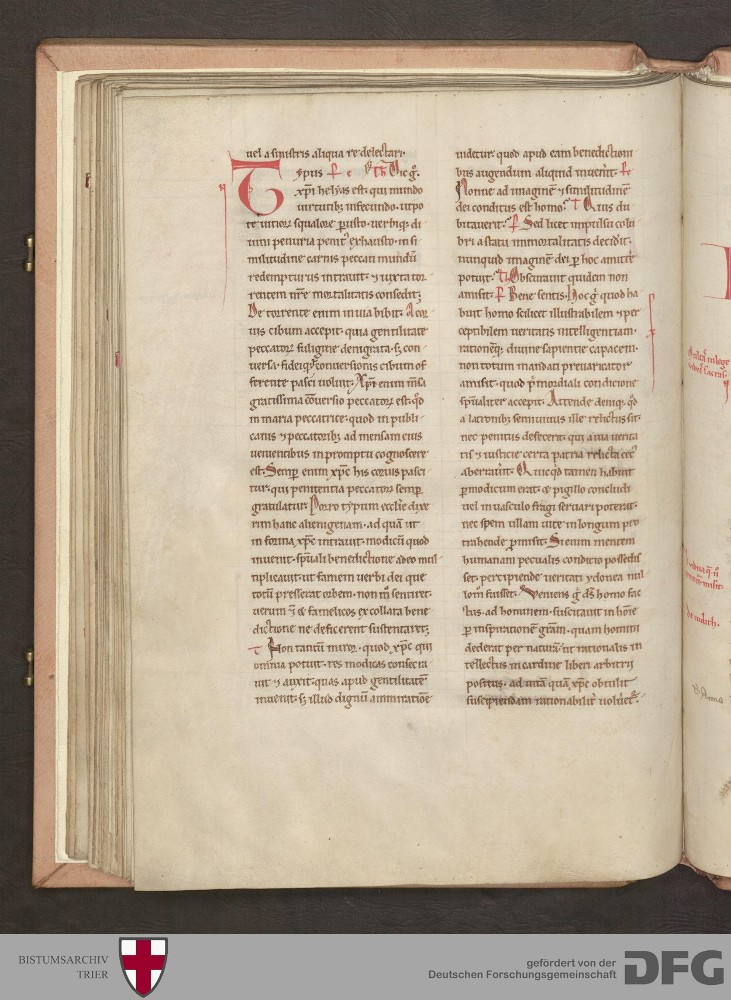 uel a sinistris aliqua re delectari.
Typus
xp̄i helyas est. qui mundo
uirtutib; infecundo. turpo
re uitioꝝ squalore
uini penuria penit᷒ exhausto. in si
militudine carnis peccati mundū
redempturus intrauit. ⁊ iuxta tor
rentem nr̄e mortalitatis consedit;
De torrente enim in uia bibit. A cor
uis cibum accepit. quia gentilitate
peccatoꝝ fuligine denigrata. s; con
uersa. fidei q; conuersionis cibum of
ferente pasci uoluit. Xp̄i enim mīsa
gratissima cōuersio peccatoꝝ est. qđ
in maria peccatrice. quod in publi
canis ⁊ peccatorib; ad mensam eius
uenientibus in promptu cognoscere
est. Semp enim xp̄c his coruis pasci
tur. qui penitentia peccatoꝝ semp
gratulatur. Porro typum ecclīe dixe
rim hanc alienigenam. ad quā ut
in forma xp̄c intrauit. modicū quod
inuenit. sp̄uali benedictione adeo mul
tiplicauit. ut famem uerbi dei que
totū presserat orbem. non m̊ sentiret.
uerum ⁊ famelicos ex collata bene
dictione ne deficerent sustentaret;
T Non tantū miror. quod xp̄c qui
omnia potuit. res modicas consecra
uit ⁊ auxit. quas apud gentilitatē
inuenit. s; illud dignū ammiratiōe
uidetur. quod apud eam benedictioni
bus augendum aliquid inuenit.
Nonne ad imaginē ⁊ similitudinē
dei conditus est homo. T Quis du
bitauerit. P Sed licet impulsu colu
bri a statu inmortalitatis deciderit.
nunquid imaginē dei p hoc amittē
potuit. Obscurauit quidem non
amisit. P Bene sentis. Hoc g̊ quod ha
buit homo scilicet illustrabilem ⁊ per
ceptibilem ueritatis intelligentiam.
rationēq; diuine sapientie capacem.
non totum mandati preuaricator
amisit. quod p̄mordiali condicione
sp̄ualiter accepit. Attende deniq; qđ
a latronib; semiuiuus ille relictus sit.
nec penitus defecerat. qui a uia uerita
tis ⁊ iusticie certa patria relicta
aberrauit. Quicqđ tamen habuit
pmodicum erat. ⁊ pigillo concludi
uel in uasculo fragi seruari poterat.
nec spem ullam uite in longum pro
trahende pmisit. Si enim mentem
humanam pecualis conditio possedis
set. percipiende ueritati ydonea nul
lom̊ fuisset. Veniens g̊ dn̄s homo fac
tus. ad hominem. suscitauit in hoīe
p inspirationē gratiam. quam homini
dederat per naturā. ut rationalis in
tellectus in cardine liberi arbitrii
positus. ad uitā quā xp̄c obtulit
suscipiendam rationabilit̄
BISTUMSARCHIV
TRIER
gefördert von der
Deutschen Forschungsgemeinschaft
DFG